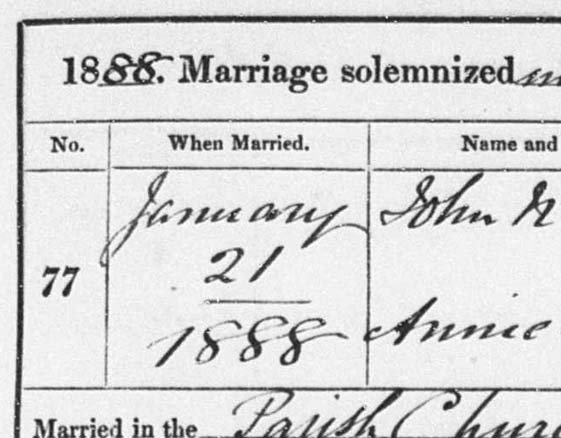 1888. Marriage solemnized
No. When Married. Name and
January John
77 21
1888 Annie
Married in the Parish